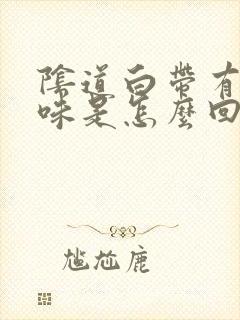 陰道白帶有
味是怎麼回
尷尬鹿